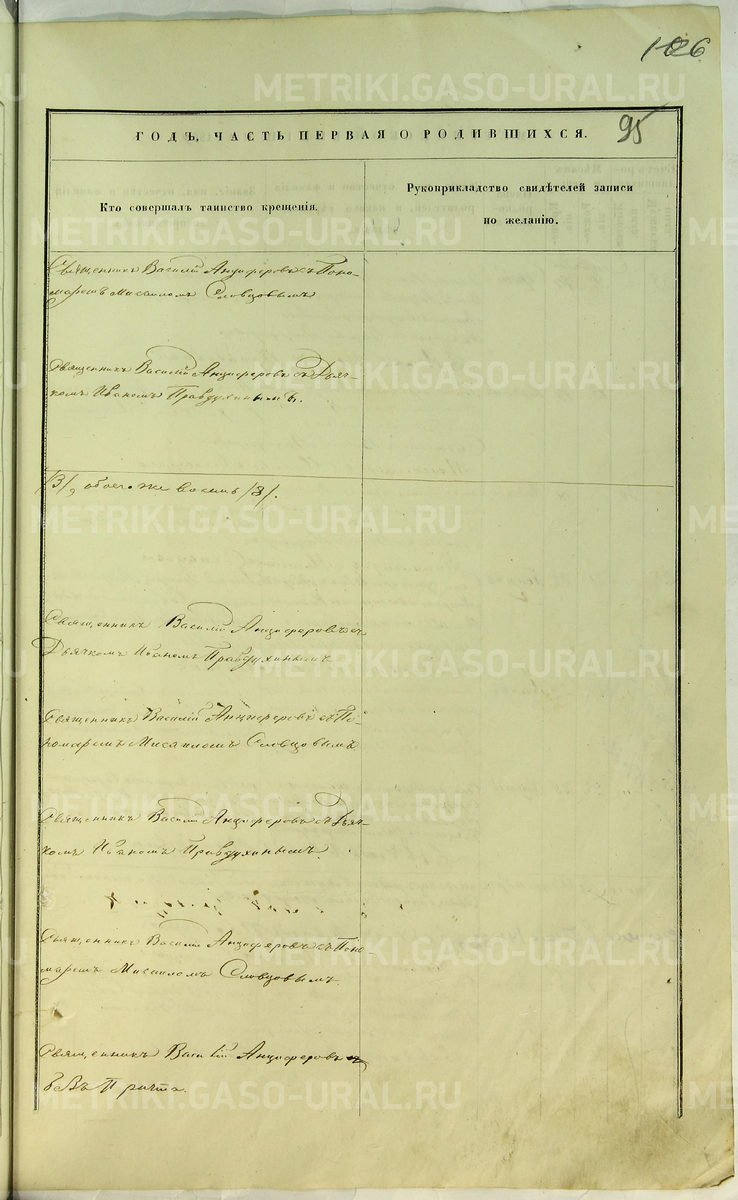 106
95
ГОДЪ, ЧАСТЬ ПЕРВАЯ О РОДИВШИХСЯ.
Кто совершалъ таинство крещенія.
Рукоприкладство свидѣтелей записи
по желанію.
Священникъ Василій Анциферовъ съ Поно-
маремъ Мисаиломъ Словцовымъ
Священникъ Василій Анциферовъ съ Дьяч-
комъ Иваномъ Правдухинымъ.
/3/,
/3/.
Священникъ Василій Анциферовъ съ
Дьячкомъ Иваномъ Правдухинымъ
Священникъ Василій Анциферовъ съ По-
номаремъ Мисаиломъ Словцовымъ
Священникъ Василій Анциферовъ съ Дьяч-
комъ Иваномъ Правдухинымъ.
Священникъ Василій Анциферовъ съ Поно-
маремъ Мисаиломъ Словцовымъ.
Священникъ Василій Анциферовъ
Причта.
METRIKI.GASO-URAL.RU